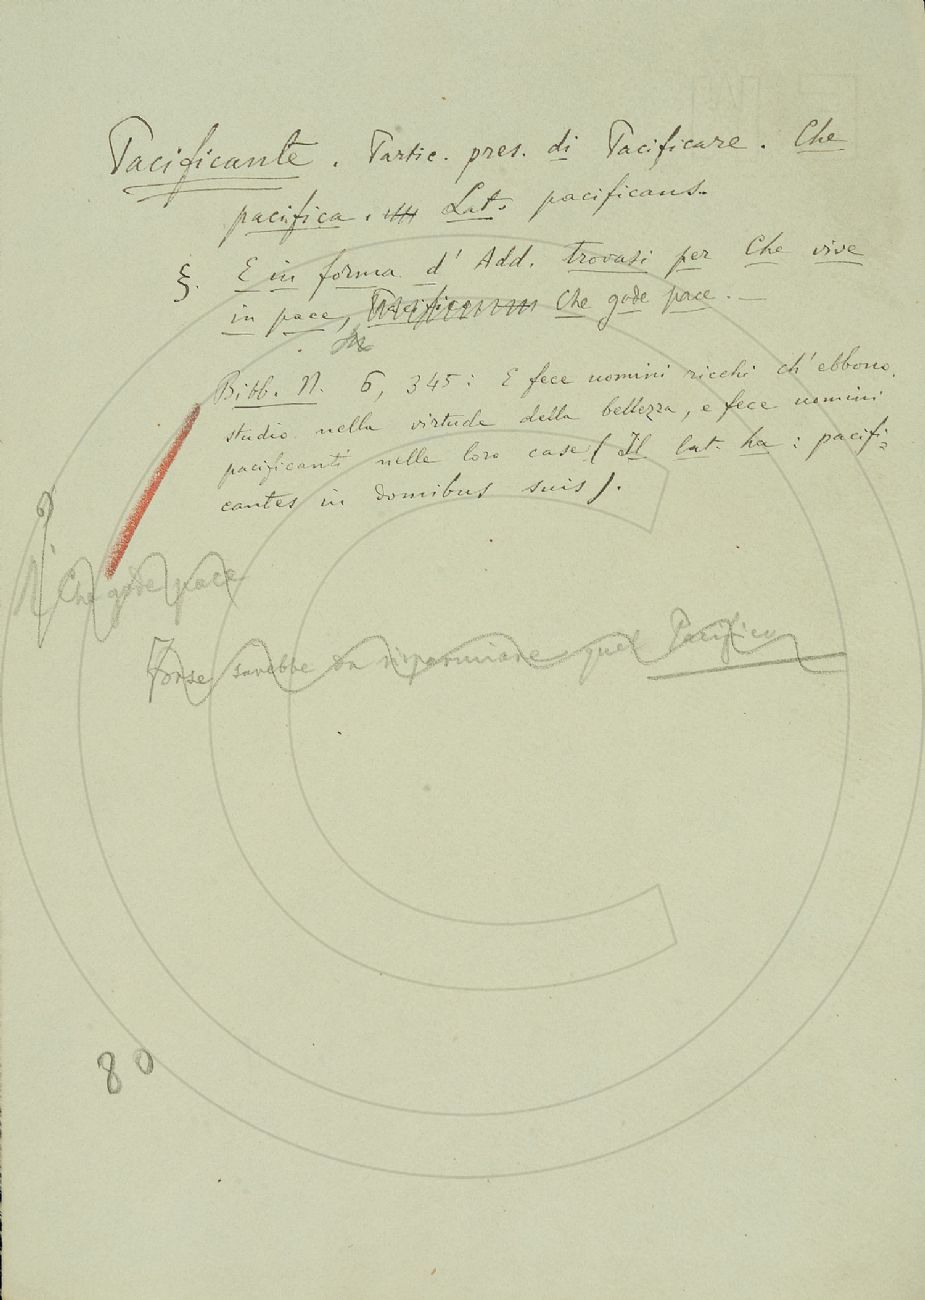 Pacificante. Partic. pres. di Pacificare. Che
pacifica. Lat. pacificans.
§. E in forma d' Add. trovasi per Che vive
in pace, Pacifico Che gode pace. —
Bibb. N. 6, 345: E fece uomini ricchi ch' ebbono
studio nella virtude della bellezza, e fece uomini
pacificanti nelle loro case (Il lat. ha: pacifi-
cantes in domibus suis).
Che gode pace
Forse sarebbe da risparmiare quel Pacifico
80